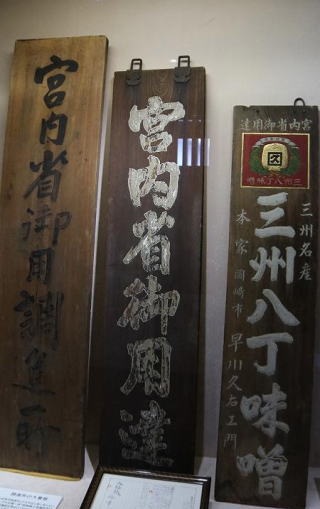 宮内省御用調進所
宮内省御用達
達用御省内宮
久
噌味丁八州三
三州名産
三州八丁味噌
本家 岡崎市 早川久右エ門